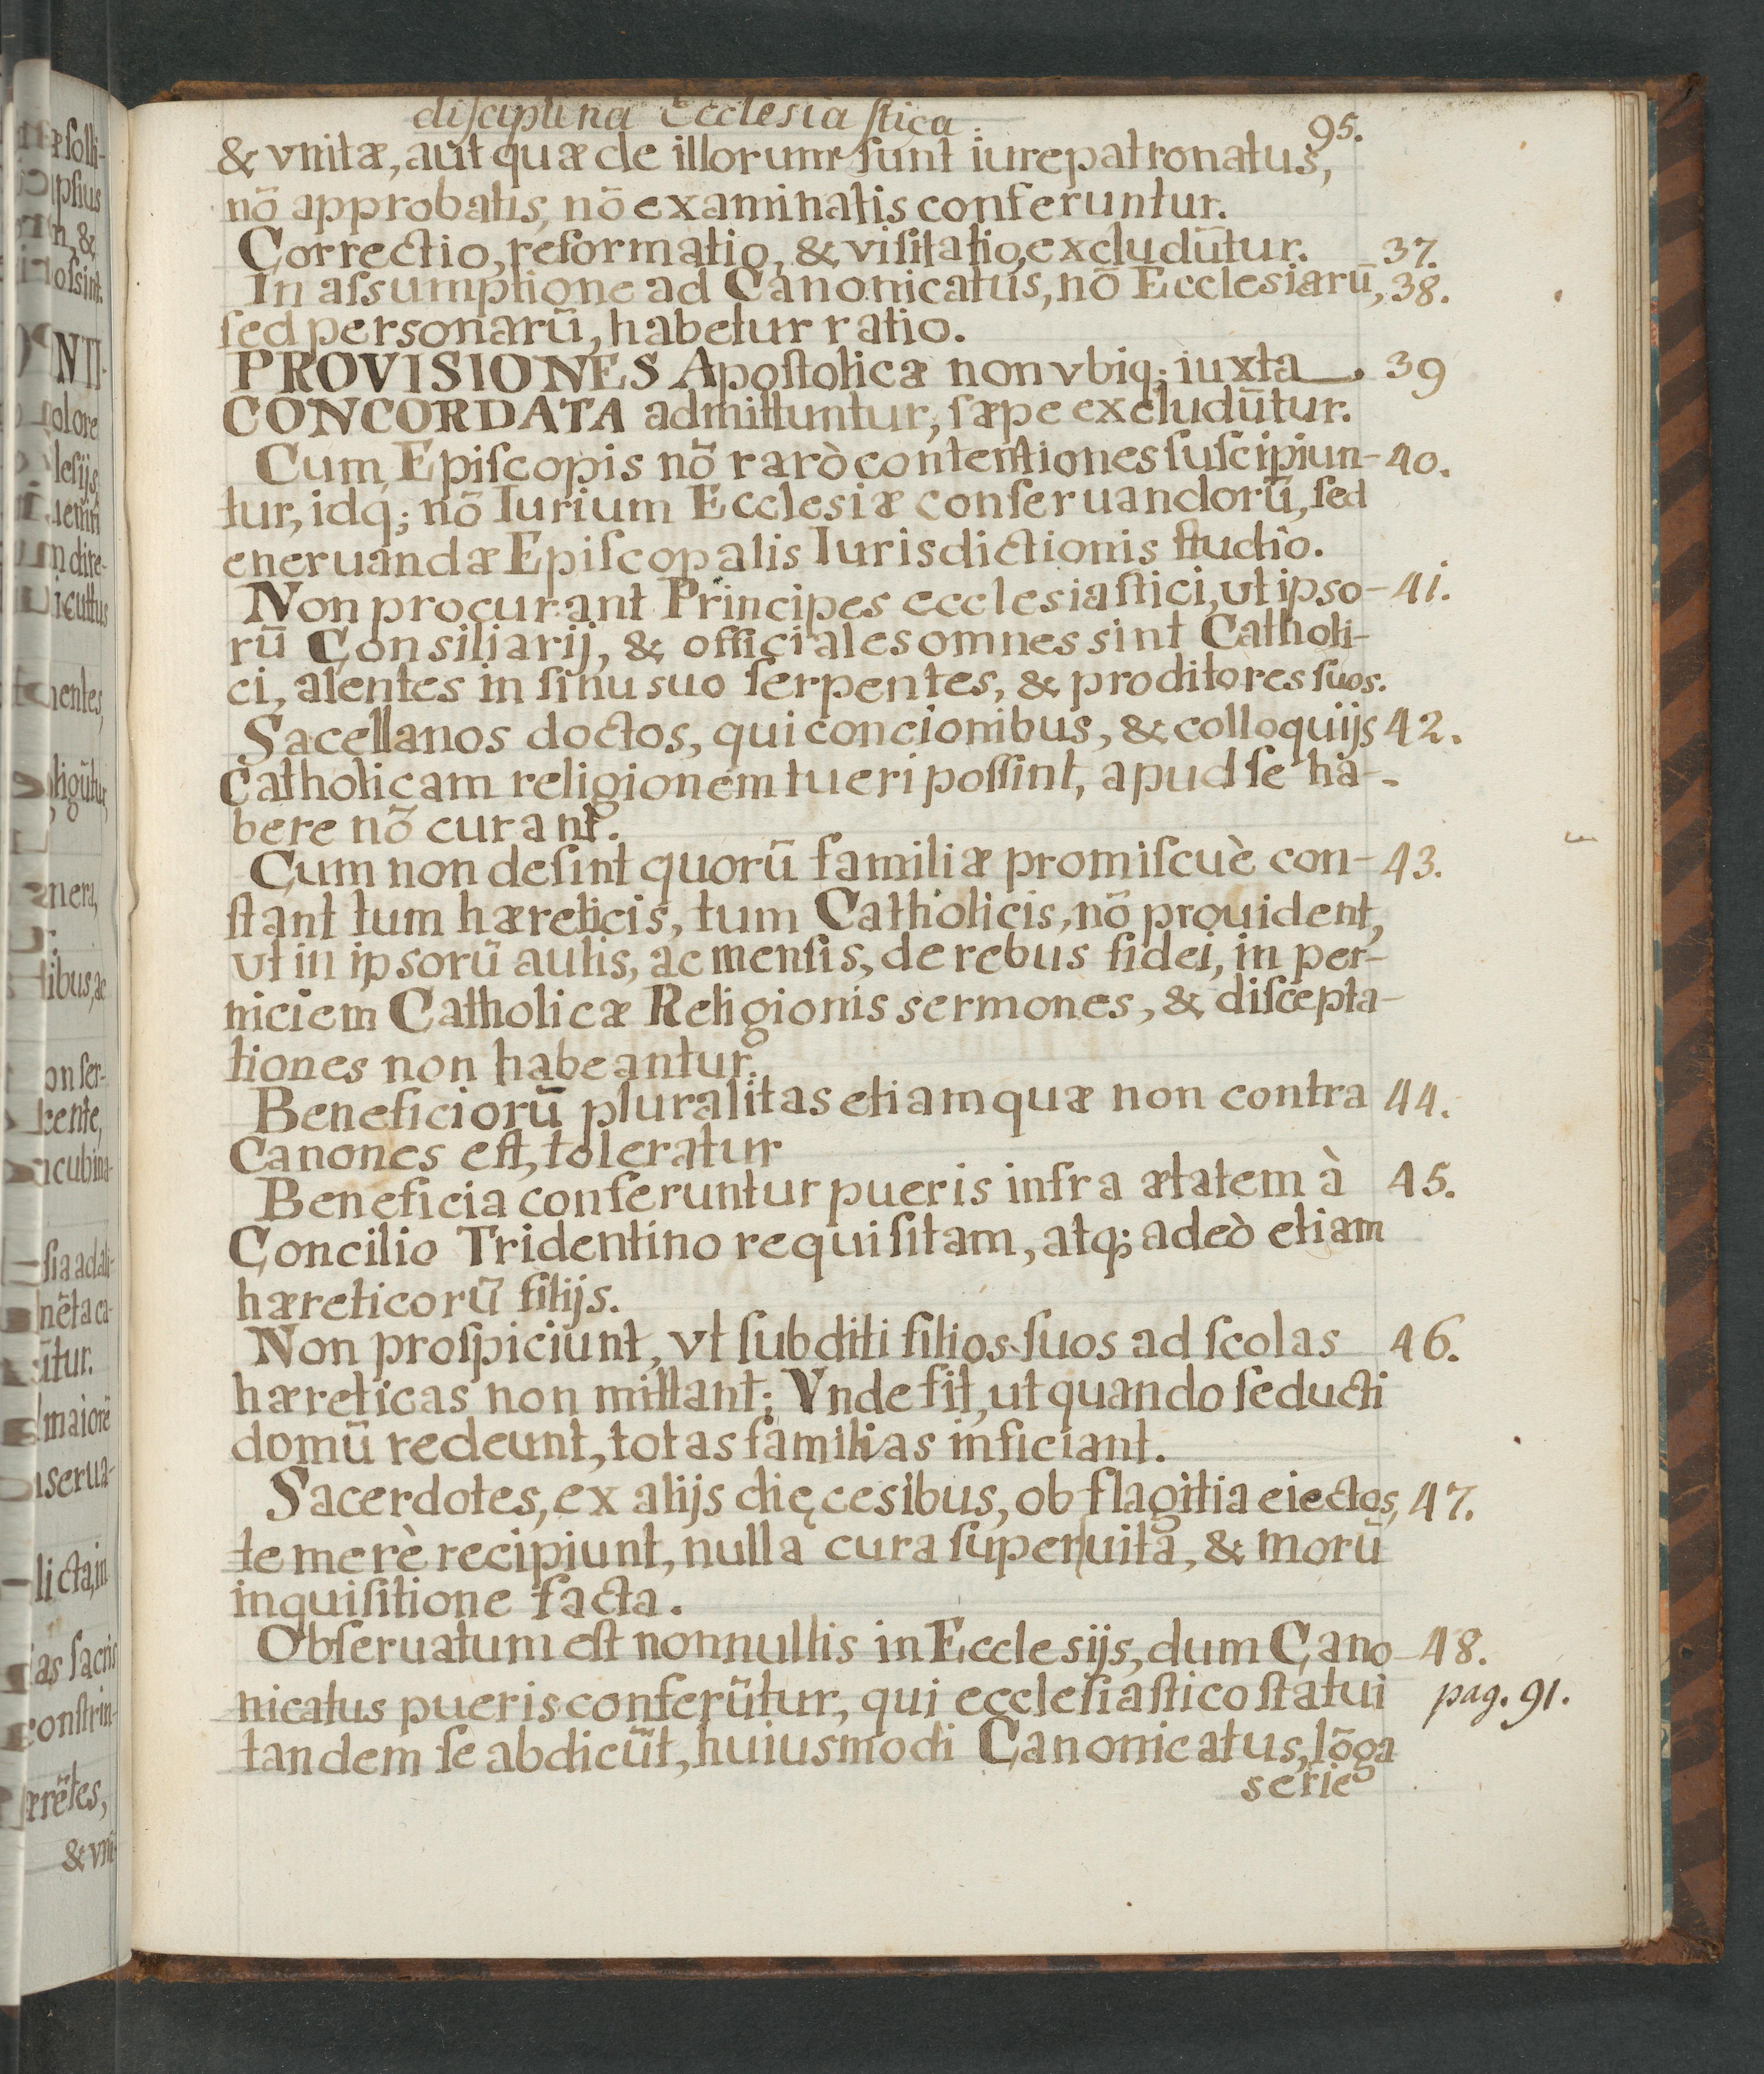 disciplina Ecclesiastica.
95.
& vnitæ, aut quæ de illorum sunt iure patronatus,
nõ approbatis, nõ examinatis conferuntur.
Correctio, reformatio, & visitatio, excludũtur. 37.
In assumptione ad Canonicatus, nõ Ecclesiarũ, 38.
sed personarũ, habetur ratio.
PROVISIONES Apostolicæ non vbiq; iuxta 39
CONCORDATA admittuntur, sæpe excludũtur.
Cum Episcopis nõ rarò contentiones suscipiun- 40.
tur, idq; nõ Iurium Ecclesiæ conseruandorũ, sed
eneruandæ Episcopalis Iurisdictionis studio.
Non procurant Principes ecclesiastici, ut ipso- 41.
rũ Consiliarij, & officiales omnes sint Catholi-
ci, alentes in sinu suo serpentes, & proditores suos.
Sacellanos doctos, qui concionibus, & colloquijs 42.
Catholicam religionem tueri possint, apud se ha-
bere nõ curant.
Cum non desint quorũ familiæ promiscuè con- 43.
stant tum hæreticis, tum Catholicis, nõ prouident,
ut in ipsorũ aulis, ac mensis, de rebus fidei, in per-
niciem Catholicæ Religionis sermones, & discepta-
tiones non habeantur.
Beneficiorũ pluralitas etiam quæ non contra 44.
Canones est, toleratur
Beneficia conferuntur pueris infra ætatem à 45.
Concilio Tridentino requisitam, atq; adeò etiam
hæreticorũ filijs.
Non prospiciunt, vt subditi filios suos ad scolas 46.
hæreticas non mittant; Vnde fit, ut quando seducti
domũ redeunt, totas familias inficiant.
Sacerdotes, ex alijs dięcesibus, ob flagitia eiectos, 47.
temerè recipiunt, nulla cura super uitã, & morũ
inquisitione facta.
Obseruatum est nonnullis in Ecclesijs, dum Cano 48.
nicatus pueris conferũtur, qui ecclesiastico statui pag. 91.
tandem se abdicũt, huiusmodi Canonicatus, lõga
serie